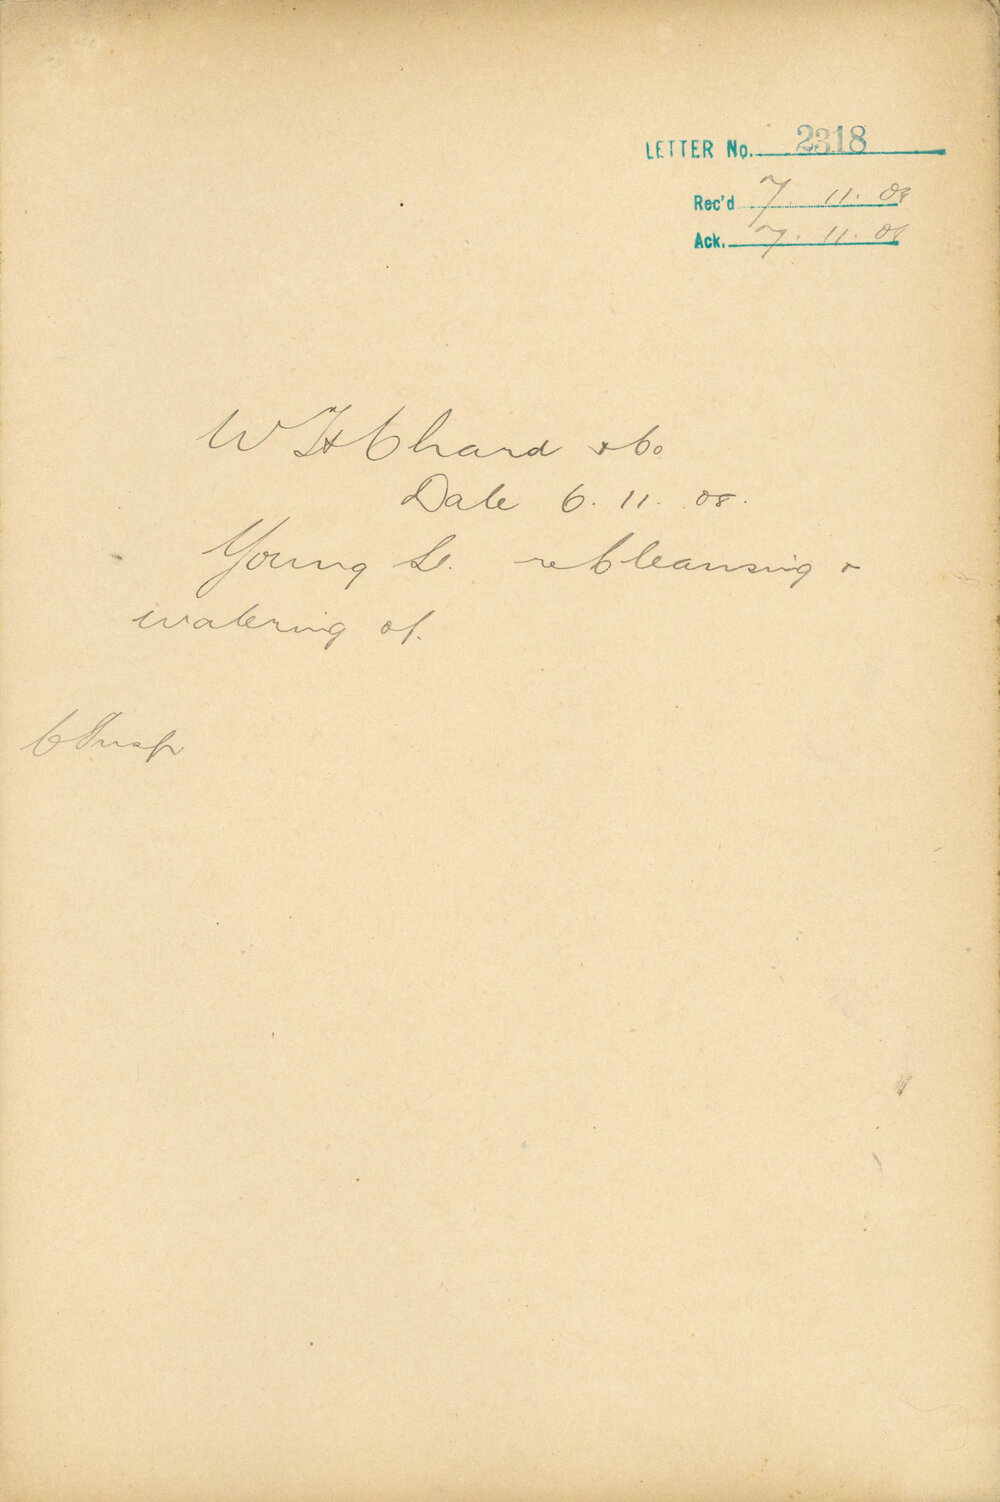 LETTER No. 2318
Rec'd 7. 11. 08
Ack. 7. 11. 08
W H Chard & Co
Date 6. 11. 08.
Young St. re Cleansing &
watering of.
C Insp